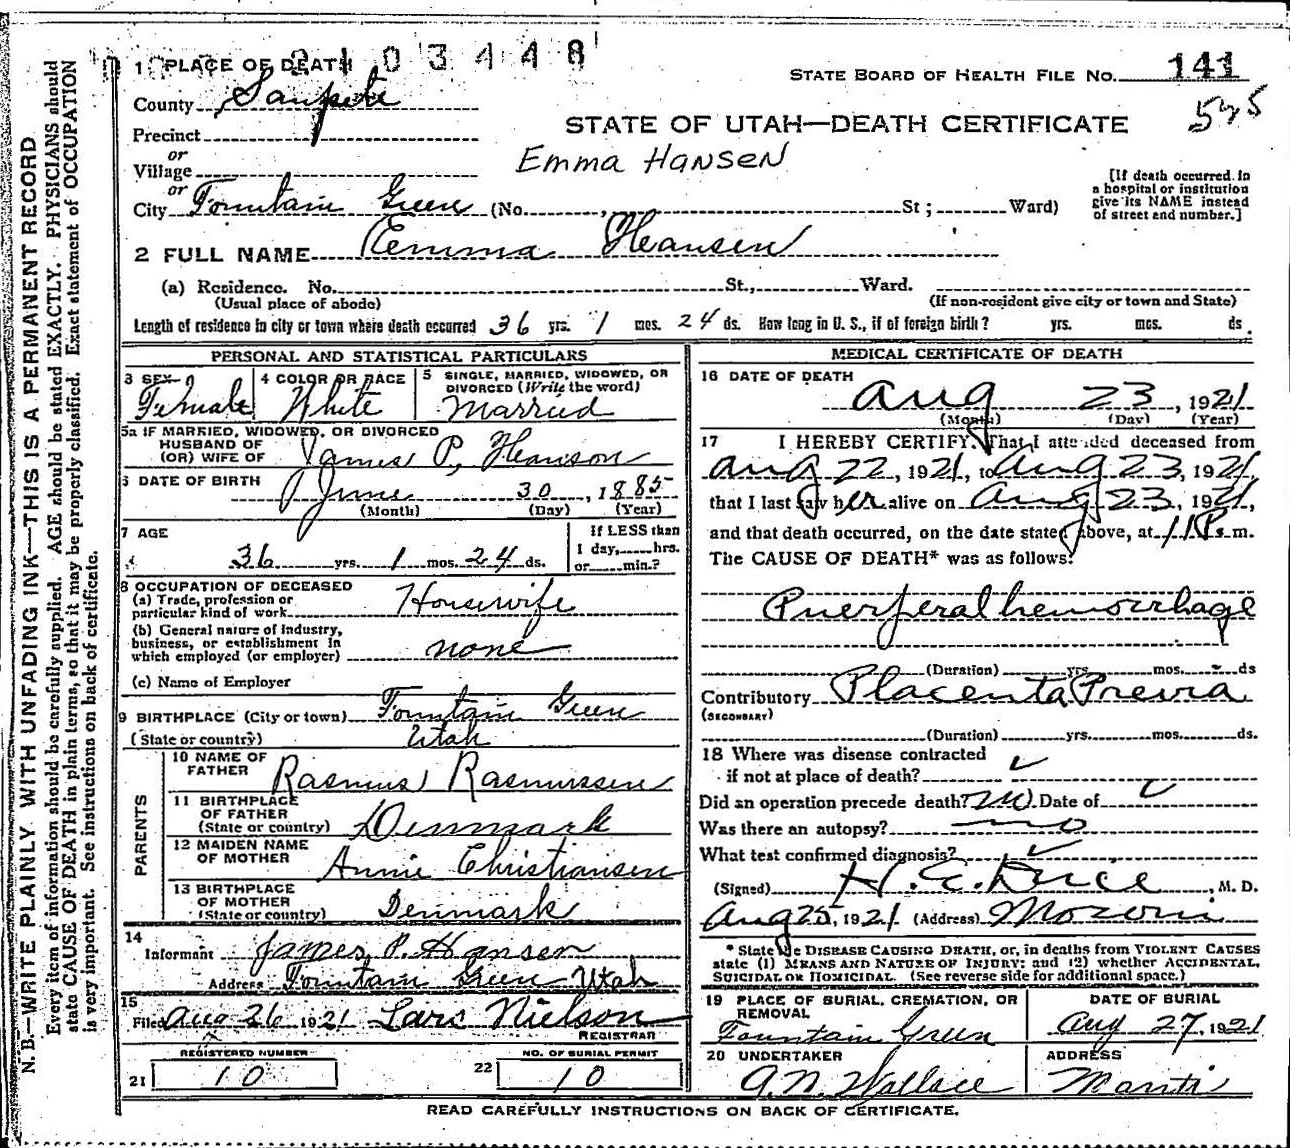 2103448
1 PLACE OF DEATH
STATE BOARD OF HEALTH FILE NO. 141
County Sanpete
Precinct
STATE OF UTAH—DEATH CERTIFICATE
or
Village
Emma Hansen
or
City Fountain Green (No. , St; Ward)
[If death occurred in
a hospital or institution
give its NAME instead
of street and number.]
2 FULL NAME Emma Hansen
(a) Residence. No. St., Ward.
(Usual place of abode)
(If non-resident give city or town and State)
Length of residence in city or town where death occurred 36 yrs. 1 mos. 24 ds. How long in U. S., if of foreign birth? yrs. mos. ds.
PERSONAL AND STATISTICAL PARTICULARS
3 SEX
Female
4 COLOR OR RACE
White
5 SINGLE, MARRIED, WIDOWED, OR
DIVORCED (Write the word)
Married
5a IF MARRIED, WIDOWED, OR DIVORCED
HUSBAND OF
(OR) WIFE OF James P. Hanson
6 DATE OF BIRTH
June 30, 1885
(Month) (Day) (Year)
7 AGE
36 yrs. 1 mos. 24 ds.
If LESS than
1 day, hrs.
or min.?
8 OCCUPATION OF DECEASED
(a) Trade, profession or
particular kind of work Housewife
(b) General nature of industry,
business, or establishment in
which employed (or employer) none
(c) Name of Employer
9 BIRTHPLACE (City or town) Fountain Green
(State or country) Utah
PARENTS
10 NAME OF
FATHER Rasmus Rasmussen
11 BIRTHPLACE
OF FATHER
(State or country) Denmark
12 MAIDEN NAME
OF MOTHER Annie Christiansen
13 BIRTHPLACE
OF MOTHER
(State or country) Denmark
14
Informant James P. Hansen
Address Fountain Green Utah
15
Filed Aug 26 1921 Lars Nielson
REGISTRAR
REGISTERED NUMBER
21 10
NO. OF BURIAL PERMIT
22 10
MEDICAL CERTIFICATE OF DEATH
16 DATE OF DEATH
Aug 23, 1921
(Month) (Day) (Year)
17 I HEREBY CERTIFY, That I attended deceased from
Aug 22, 1921, to Aug 23, 1921,
that I last saw her alive on Aug 23, 1921,
and that death occurred, on the date stated above, at 11 P. m.
The CAUSE OF DEATH* was as follows:
Puerperal hemorrhage
(Duration) yrs. mos. ds
Contributory Placenta Previa
(SECONDARY)
(Duration) yrs. mos. ds.
18 Where was disease contracted
if not at place of death? ✓
Did an operation precede death? no Date of ✓
Was there an autopsy? no
What test confirmed diagnosis? ✓
(Signed) , M. D.
Aug 25, 1921 (Address) Moroni
* State the DISEASE CAUSING DEATH, or, in deaths from VIOLENT CAUSES
state (1) MEANS AND NATURE OF INJURY; and (2) whether ACCIDENTAL,
SUICIDAL OR HOMICIDAL. (See reverse side for additional space.)
19 PLACE OF BURIAL, CREMATION, OR
REMOVAL
Fountain Green
DATE OF BURIAL
Aug 27, 1921
20 UNDERTAKER
A. N. Wallace
ADDRESS
Manti
READ CAREFULLY INSTRUCTIONS ON BACK OF CERTIFICATE.
N. B.—WRITE PLAINLY WITH UNFADING INK—THIS IS A PERMANENT RECORD
Every item of information should be carefully supplied. AGE should be stated EXACTLY. PHYSICIANS should
state CAUSE OF DEATH in plain terms, so that it may be properly classified. Exact statement of OCCUPATION
is very important. See instructions on back of certificate.